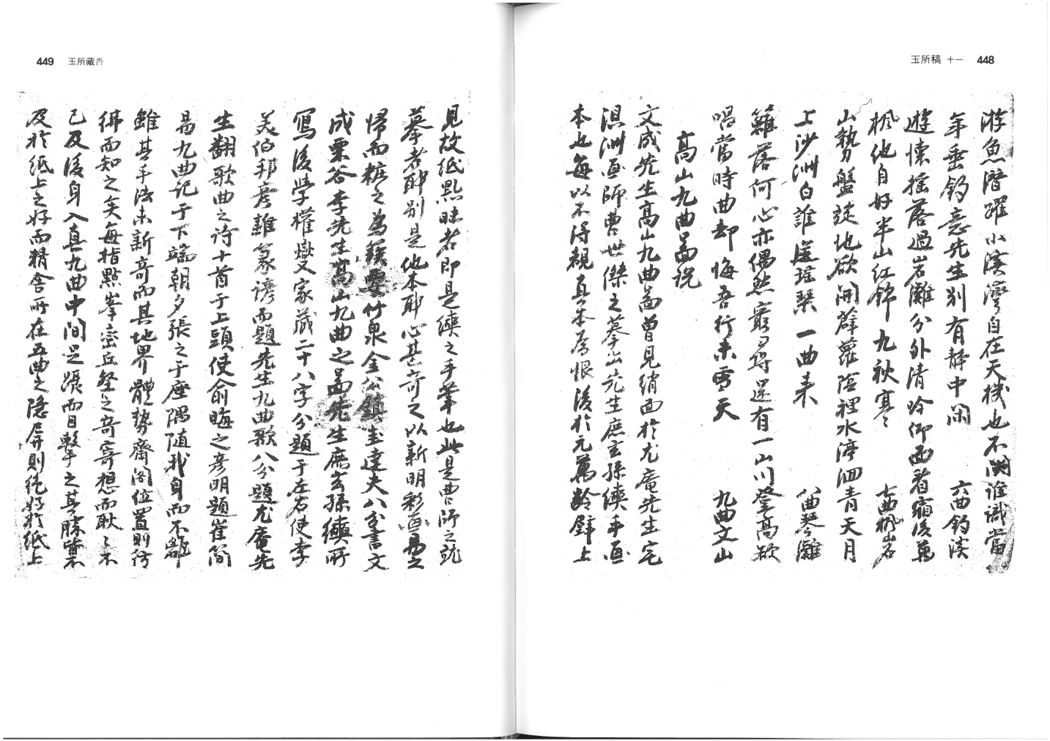 玉所稿 十一 448
游魚潛躍小溪灣自在天機也不關誰識當
年垂釣意先生別有靜中閑 六曲釣溪
遊懷搖落過岩灘分外清冷仰面看霜後萬
楓他自好半山紅錦九秋寒 七曲楓岩
山勢盤旋地欲開薜蘿陰裡水渟洄青天月
上沙洲白誰送瑤琴一曲來 八曲琴灘
籬落何心亦偶然 還有一山川登高欲
唱當時曲却悔吾行未雪天 九曲文山
高山九曲啚說
文成先生高山九曲啚曾見綃面於尤庵先生宅
淇洲画師曺世傑之摹出先生庶玄孫續手画
本也每以不得親真本爲恨後於元萬齡壁上
449 玉所藏弆
見故紙點昧者即是續之手筆也此是曺師之所
摹者耶別是他本耶心甚奇之以新明彩画易之
帰而糚之爲簇要竹泉金公鎮圭達夫八分書文
成栗谷李先生高山九曲之啚先生庶玄孫續所
寫後學權燮家藏二十八字分題于左右使李
美伯邦彦雜篆諺而題先生九曲歌八分題尤庵先
生翻歌曲之诗十首于上頭使俞晦之彦明題崔簡
易九曲記于下端朝夕張之于座隅随我身而不離
雖其手法未新奇而其地界體勢齋閣位置則彷
彿而知之矣每指點峯巒丘壑之奇寄想而耿々不
已及後身入真九曲中間足躡而目擊之其勝實不
及於紙上之好而精舍所在五曲之隐屏則絶好於紙上